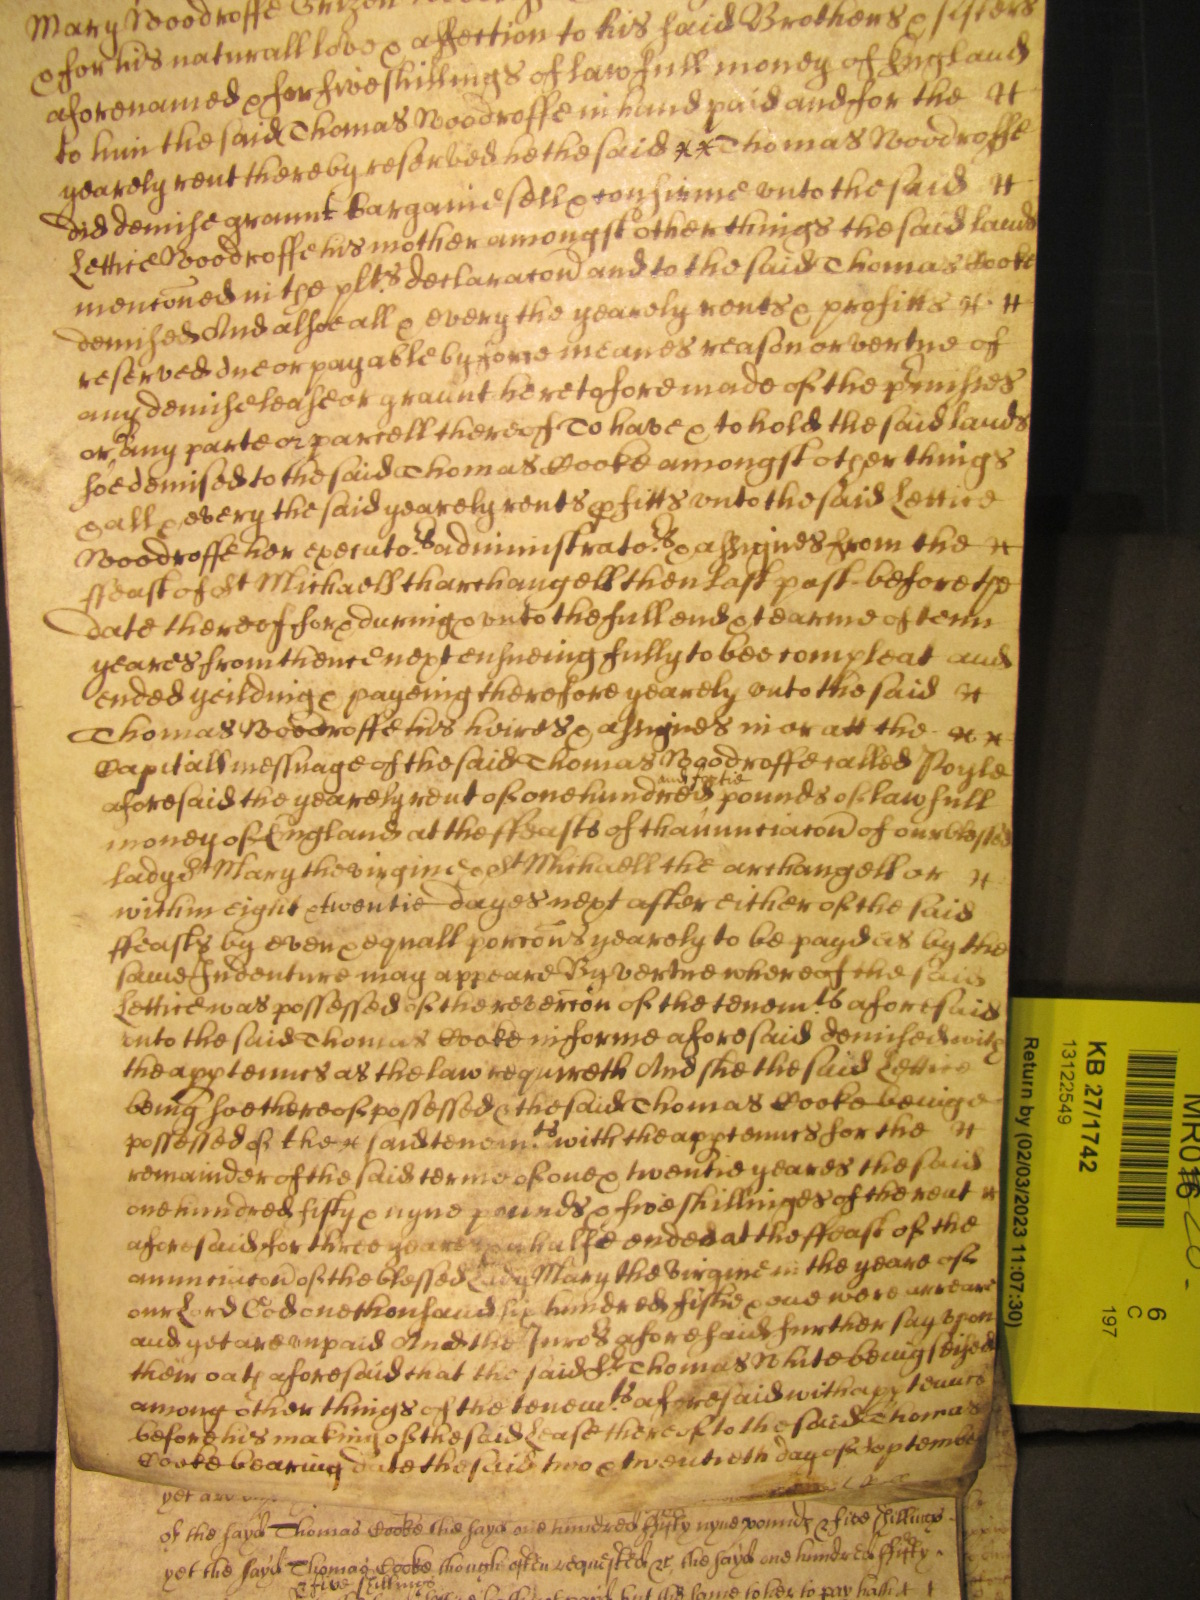 Mary Woodroffe Grizen
& for his naturall love & affection to his said Brothers & sisters
aforenamed & for five shillings of lawfull money of England
to him the said Thomas Woodroffe in hand paid and for the
yearely rent thereby reserved he the said Thomas Woodroffe
did demise graunt bargaine sell & confirme unto the said
Lettice Woodroffe his mother amongst other things the said lands
menconed in the plts declaracon and to the said Thomas Cooke
demised And alsoe all & every the yearely rents & profitts
reserved due or payable by force meanes reason or vertue of
any demise lease or graunt heretofore made of the prmisses
or any parte or parcell thereof To have & to hold the said lands
soe demised to the said Thomas Cooke amongst other things
& all & every the said yearely rents & pfitts unto the said Lettice
Woodroffe her executors administrators & assignes from the
ffeast of St Michaell tharchangell then last past before the
date thereof for & during & unto the full end & tearme of tenn
yeares from thence next ensueing fully to bee compleat and
ended yeilding & payeing therefore yearely unto the said
Thomas Woodroffe his heires & assignes in or att the
Capitall messuage of the said Thomas Woodroffe called Poyle
and fortie
aforesaid the yearely rent of one hundred pounds of lawfull
money of England at the ffeasts of thannunciacon of our blessed
lady St Mary the virgine & St Michaell the archangell or
within eight & twentie dayes next after either of the said
ffeasts by even & equall porcons yearely to be payd as by the
same Indenture may appeare By vertue whereof the said
Lettice was possessed of the revercion of the tenemts aforesaid
unto the said Thomas Cooke in forme aforesaid demised with
the apptennces as the law requireth And she the said Lettice
being soe thereof possessed & the said Thomas Cooke beinge
possessed of the said tenemts with the apptennces for the
remainder of the said terme of one & twentie yeares the said
one hundred fifty & nyne pounds & five shillinges of the rent
aforesaid for three yeares & an halfe ended at the ffeast of the
anunciacon of the blessed Lady Mary the Virgine in the yeare of
our Lord God one thousand six hundred fiftie & one were arreare
and yet are unpaid And the Jurors aforesaid further say upon
their oath aforesaid that the said Sr Thomas White being seised
among other things of the tenemts aforesaid with apptennces
before his making of the said Lease thereof to the said Thomas
Cooke bearing date the said two & twentieth day of September
yet are
of the sayd Thomas Cooke the sayd one hundred fifty nyne pounds & five shillings
yet the sayd Thomas Cooke though often requested &c the sayd one hundred ffifty
& five shillings
but the same to her to pay hath
MR016
KB 27/1742
13122549
Return by (02/03/2023 11:07:30)
6
C
197